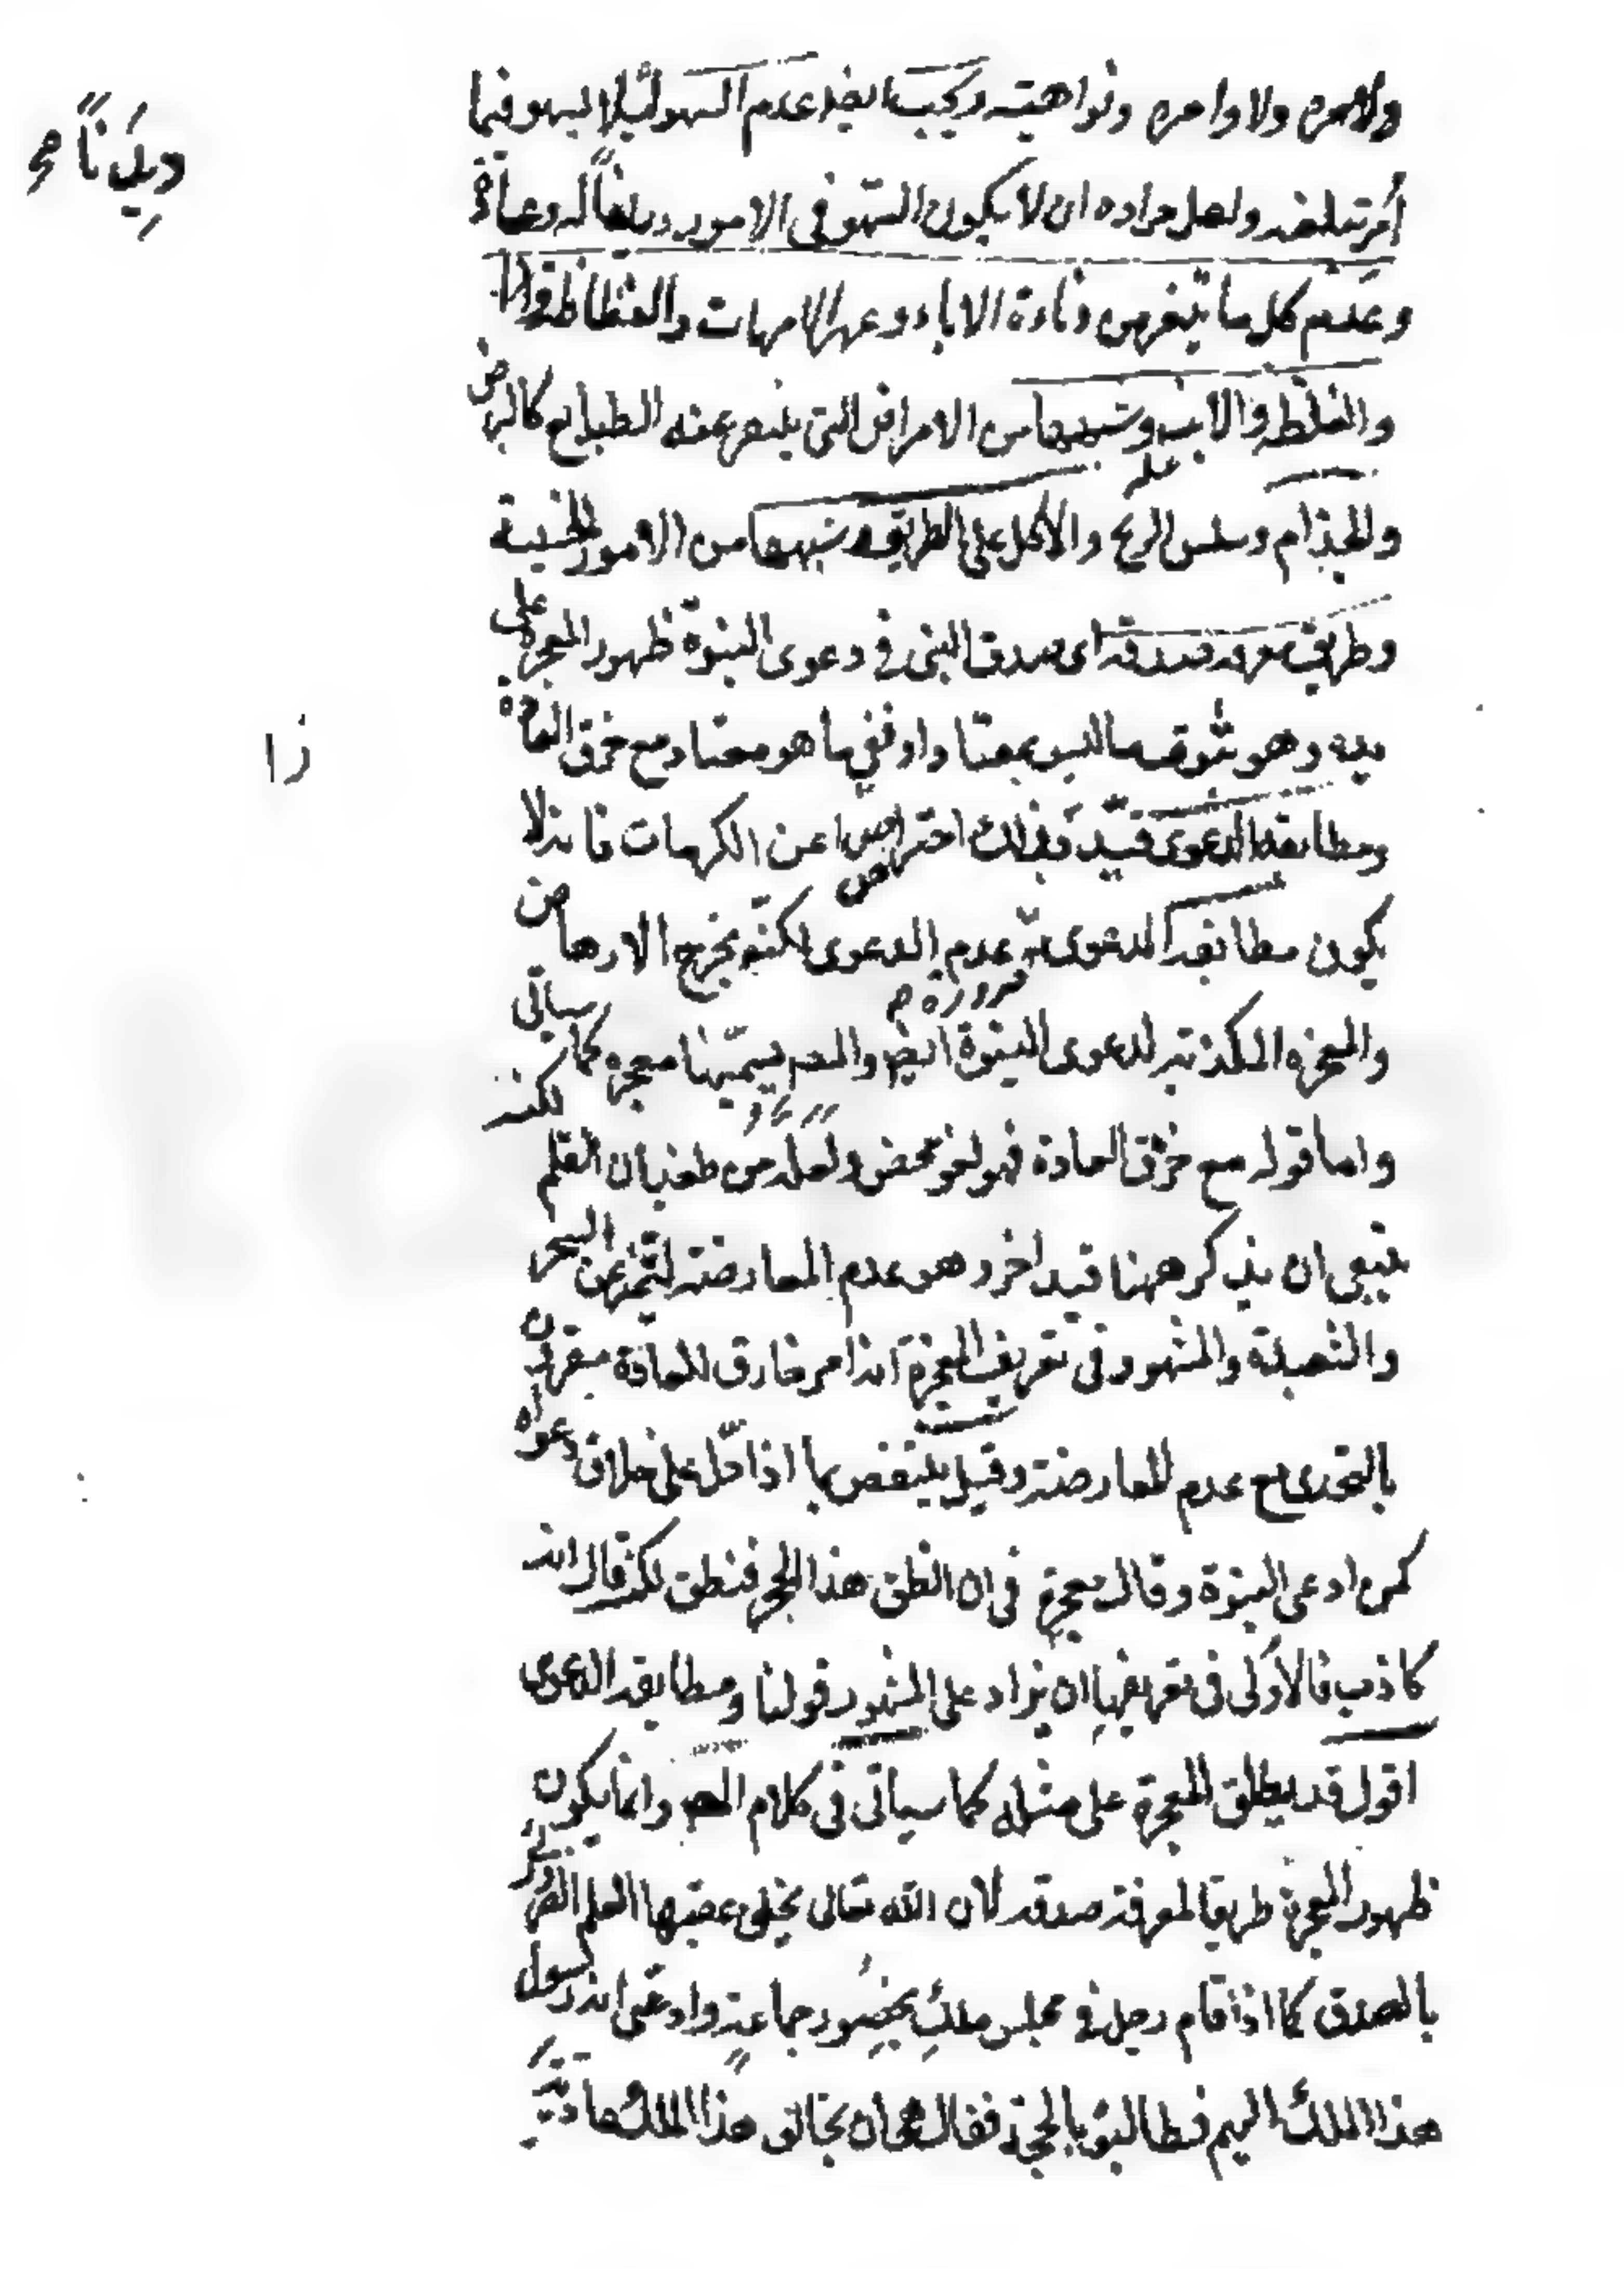 ولامره ولاوامره ونواهيه ويجب ايضا عدم السهو لئلا يسهو فيما
أمر بتبليغه ولعل مراده ان لا يكون السهو في الامور ديدنا له وعادة
ديدناً صح
وعدم كل ما ينفر من دناءة الاباء وعهر الامهات والفظاظة
والغلظة والابنة وشبهها من الامراض التي يتنفر عنه الطبايع كالبرص
والجذام وسلس الريح والاكل على الطريق وشبهه من الامور الخسيسة
وطريق معرفة صدقه اى صدق النبى فى دعوى النبوة ظهور المعجزة على
يده وهو ثبوت ما ليس بمعتاد او نفي ما هو معتاد مع خرق العادة
ومطابقة الدعوى قيد بذلك احترازا عن الكرامات فانه لا
يكون مطابقة الدعوى ضرورة عدم الدعوى لكنه يخرج الارهاص
والمعجزه المكذبة لدعوى النبوة ايضا والمص يسميها معجزه كما سيأتى
واما قوله مع خرق العادة فهو لغو محض ولعله من طغيان القلم لكنه
ينبغى ان يذكر ههنا قيد اخر وهو عدم المعارضة لتميز عن السحر
والشعبذة والمشهور فى تعريف المعجزة انه امر خارق للعادة مقرون
بالتحدى مع عدم المعارضة وقيل ينتقض بما اذا دل على خلاف دعواه
كمن ادعى النبوة وقال معجزتى فى ان انطق هذا الحجر فنطق لكنه قال انه
كاذب فالاولى فى تعريفها ان يزاد على المشهور قولنا ومطابقة الدعوى
اقول قد يطلق المعجزة على مثله كما سيأتى فى كلام المص وانما يكون
ظهور المعجزة طريقا لمعرفة صدقه لان الله تعالى يخلق عقبها العلم الضرورى
بالصدق كما اذا قام رجل فى مجلس ملك بحضور جماعة وادعى انه رسول
هذا الملك اليهم فطالبوه بالحجة فقال هى ان يخالف هذا الملك عادته